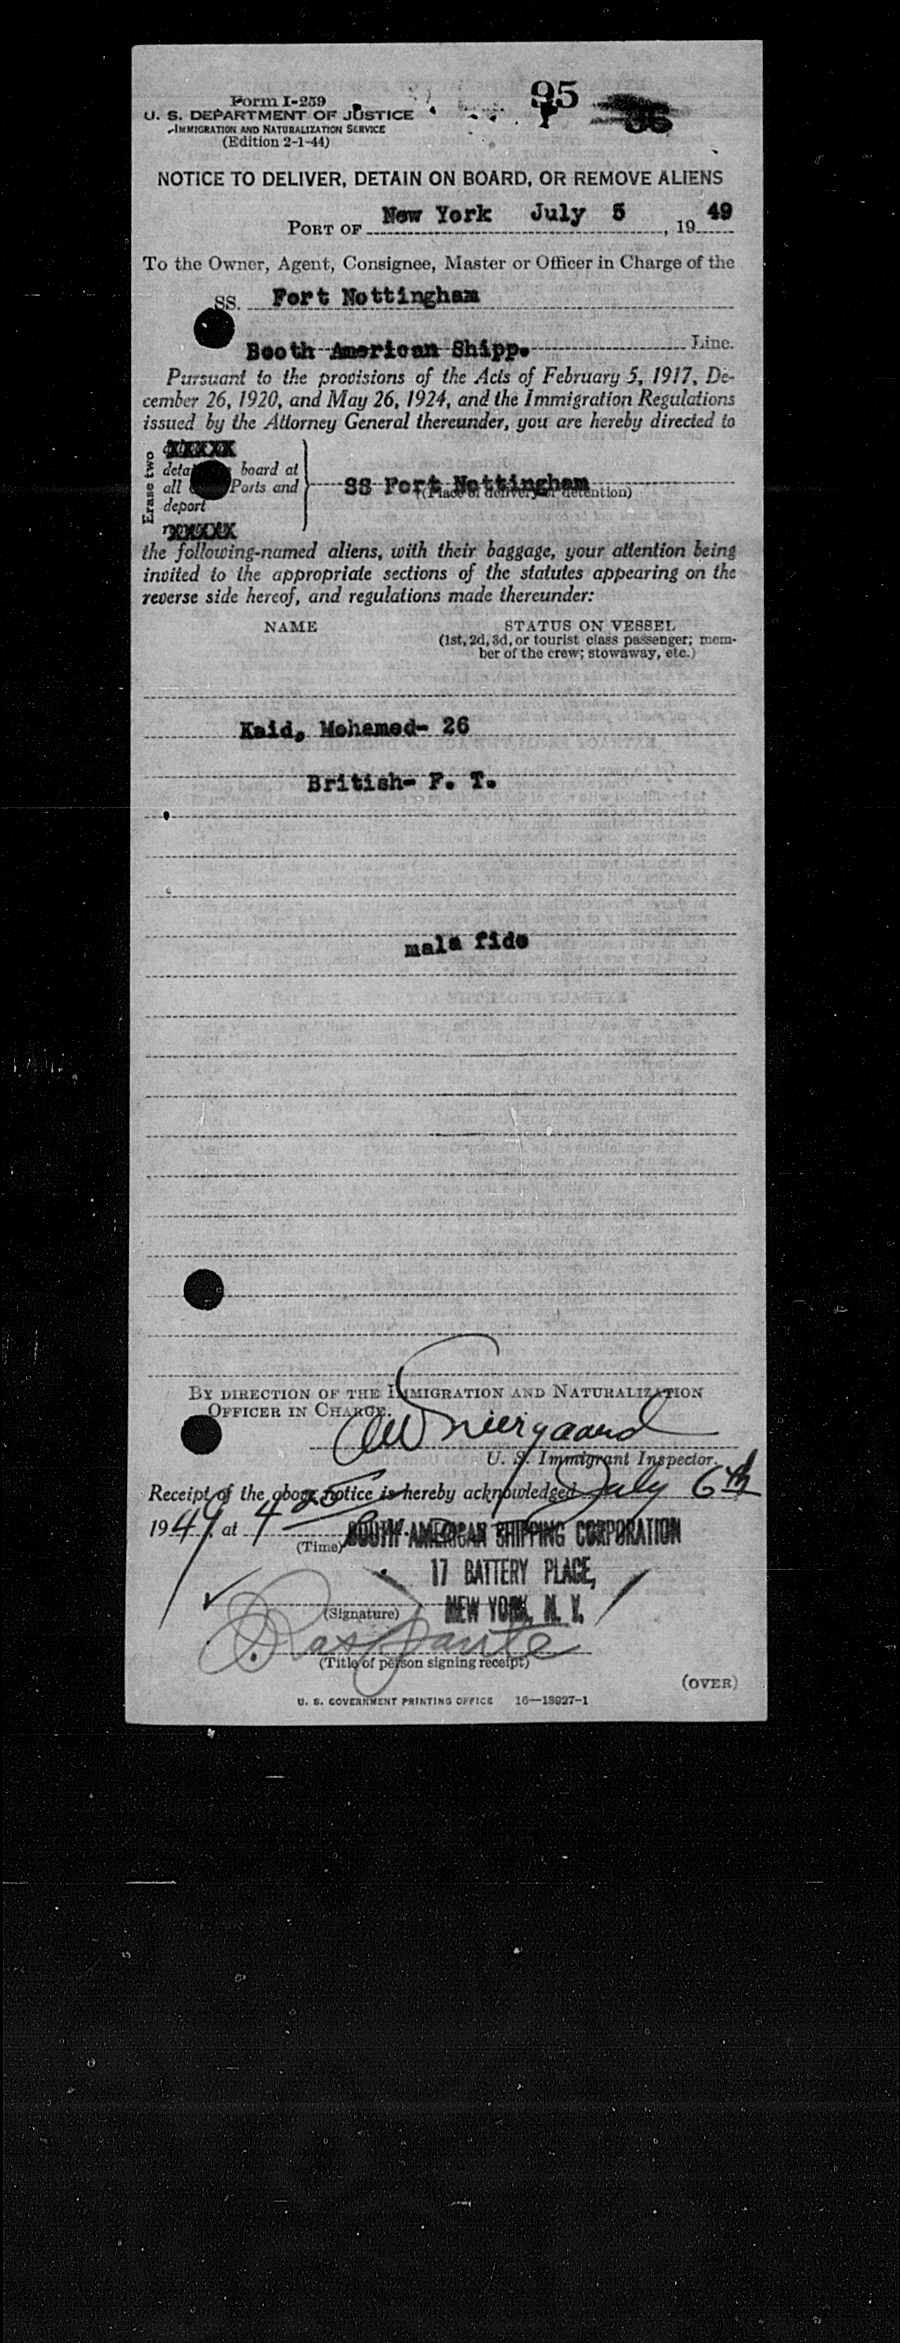 Form I-259
95
U. S. DEPARTMENT OF JUSTICE
IMMIGRATION AND NATURALIZATION SERVICE
(Edition 2-1-44)
NOTICE TO DELIVER, DETAIN ON BOARD, OR REMOVE ALIENS
PORT OF New York July 5, 1949
To the Owner, Agent, Consignee, Master or Officer in Charge of the
SS. Fort Nottingham
Booth American Shipp. Line.
Pursuant to the provisions of the Acts of February 5, 1917, De-
cember 26, 1920, and May 26, 1924, and the Immigration Regulations
issued by the Attorney General thereunder, you are hereby directed to
Erase two
board at
all Ports and
deport
SS Fort Nottingham
(Place of delivery or detention)
the following-named aliens, with their baggage, your attention being
invited to the appropriate sections of the statutes appearing on the
reverse side hereof, and regulations made thereunder:
NAME STATUS ON VESSEL
(1st, 2d, 3d, or tourist class passenger; mem-
ber of the crew; stowaway, etc.)
Kaid, Mohamed- 26
British- F. T.
mala fide
BY DIRECTION OF THE IMMIGRATION AND NATURALIZATION
OFFICER IN CHARGE.
U. S. Immigrant Inspector.
Receipt of the above notice is hereby acknowledged July 6th
1949, at 4 25
(Time)
BOOTH AMERICAN SHIPPING CORPORATION
17 BATTERY PLACE,
NEW YORK, N. Y.
(Signature)
(Title of person signing receipt)
(OVER)
U. S. GOVERNMENT PRINTING OFFICE 16—18927-1